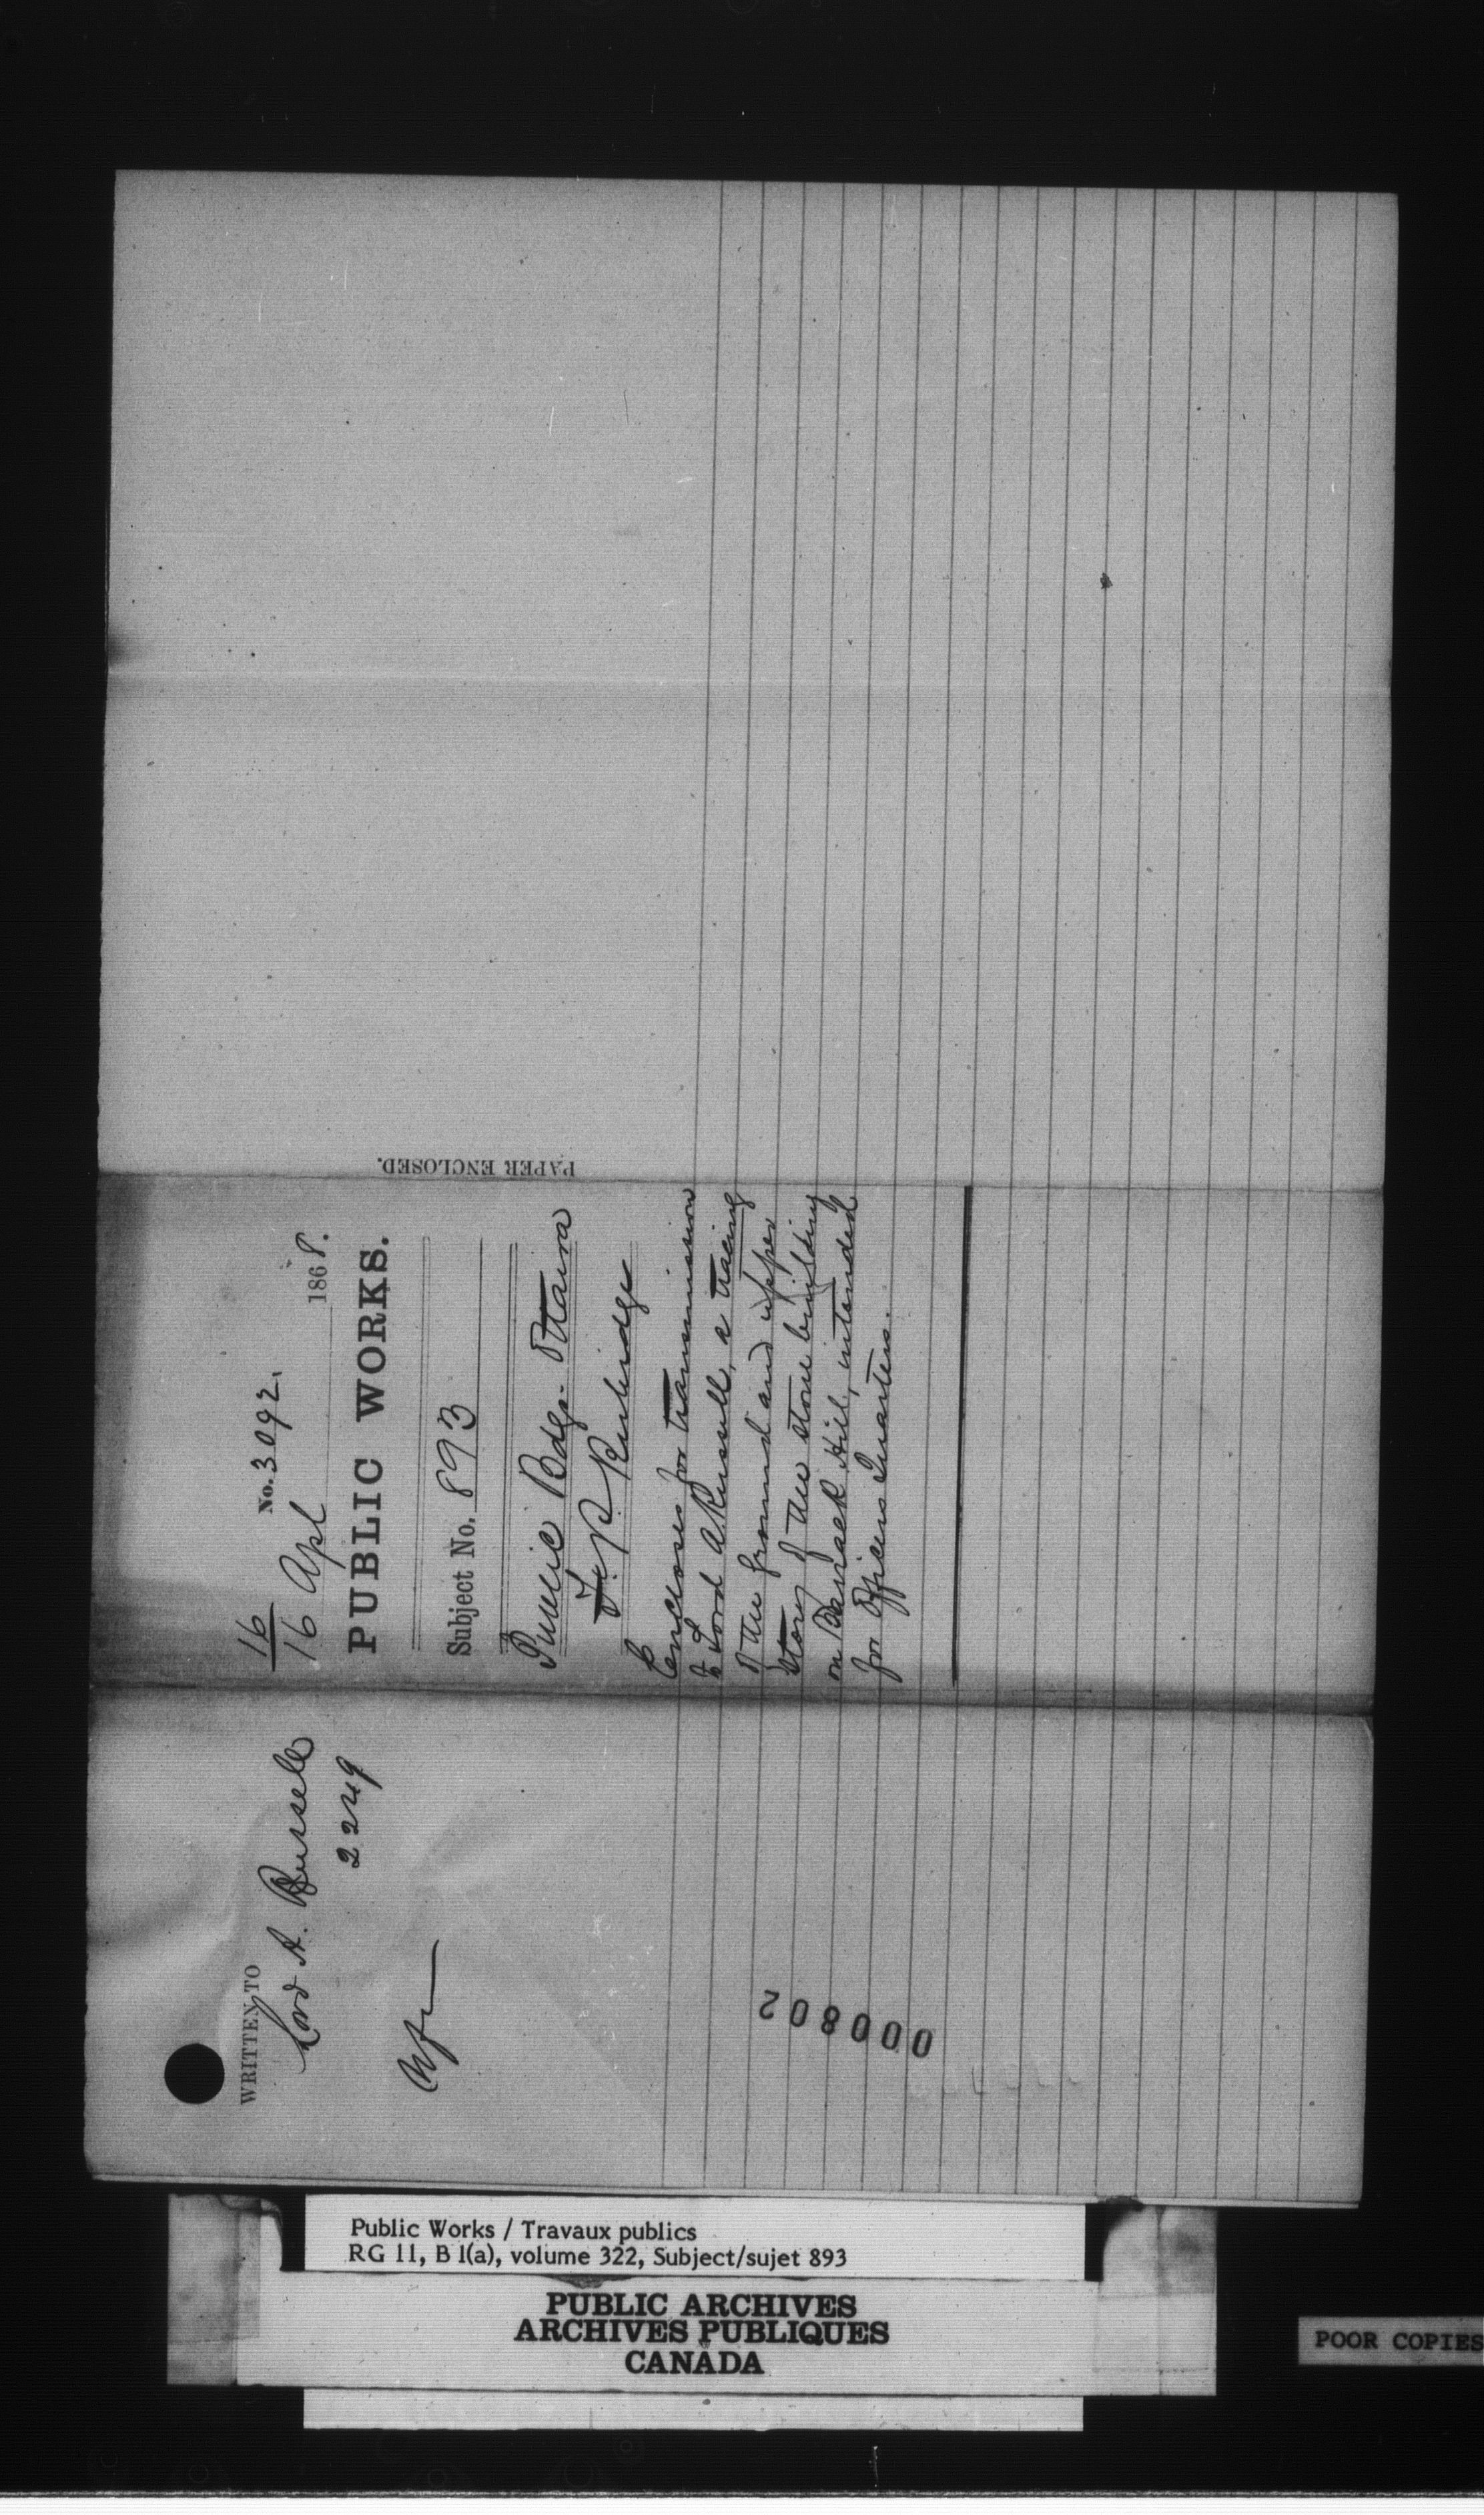 16
No. 3092.
16 Apl 1868.
PUBLIC WORKS.
Subject No. 893
Public Bdgs. Ottawa
F. P. Rubidge
Encloses for transmission
to Lord A Russell, a tracing
of the ground and upper
story of the stone building
on Barrack Hill, intended
for Officers Quarters.
PAPER ENCLOSED.
WRITTEN TO
Lord A. Russell
2249
000802
Public Works / Travaux publics
RG 11, B 1(a), volume 322, Subject/sujet 893
PUBLIC ARCHIVES
ARCHIVES PUBLIQUES
CANADA
POOR COPIES